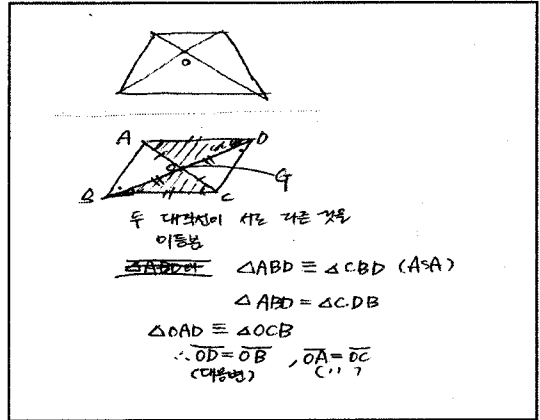 O
A D
O
G
B C
두 대각선이 서로 다른 것을
이등분
△ABD와 △ABD ≡ △CBD (ASA)
△ABD = △CDB
△OAD ≡ △OCB
∴ OD = OB , OA = OC
(대응변) ( " )